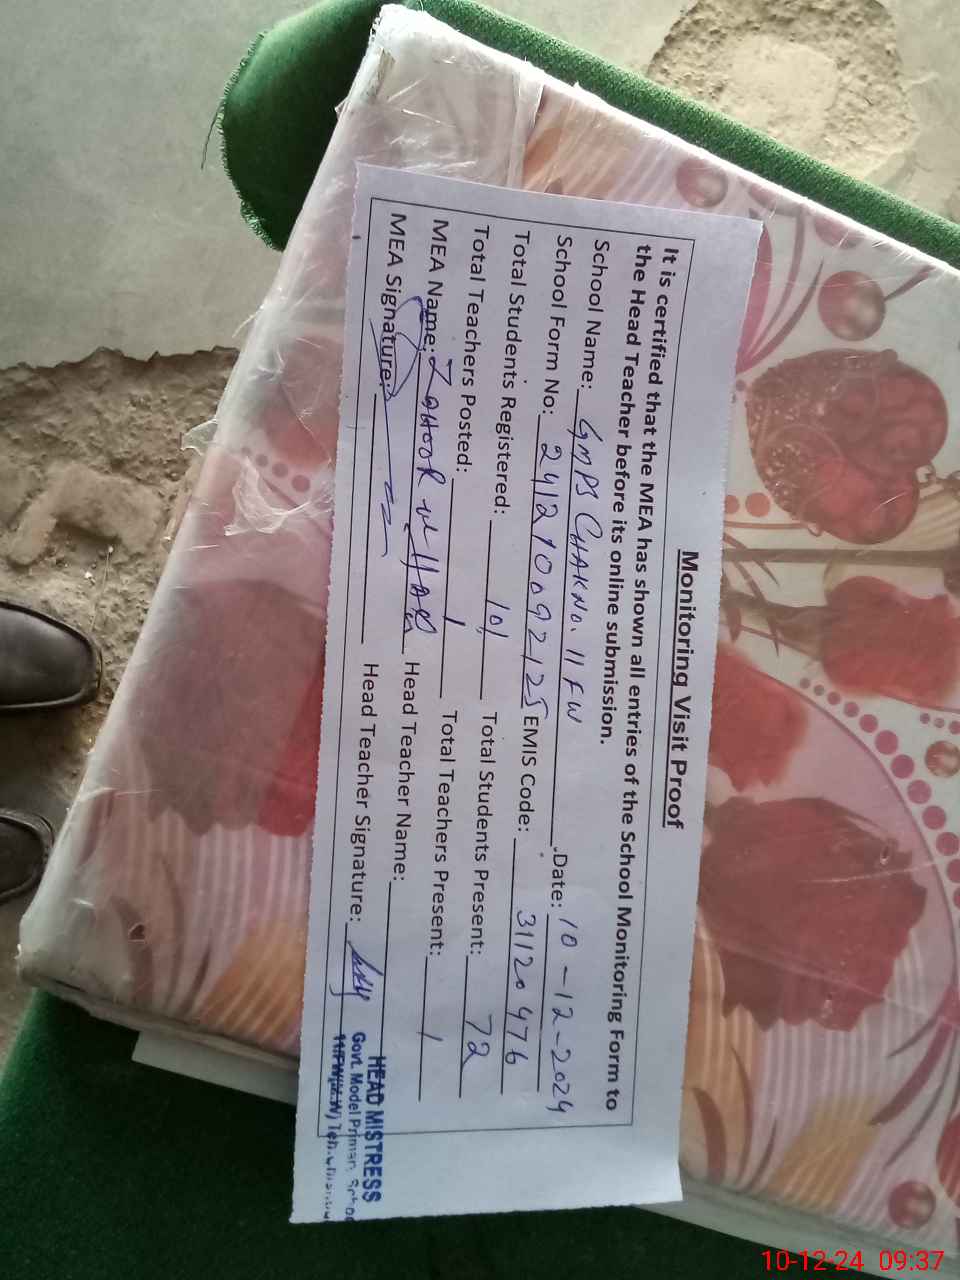 Monitoring Visit Proof
It is certified that the MEA has shown all entries of the School Monitoring Form to
the Head Teacher before its online submission.
School Name: GMPS CHAK No. 11 FW Date: 10-12-2024
School Form No: 241210092125 EMIS Code: 31120476
Total Students Registered: 101 Total Students Present: 72
Total Teachers Posted: 1 Total Teachers Present: 1
MEA Name: ZAHOOR ul HAQ Head Teacher Name:
MEA Signature: Head Teacher Signature:
HEAD MISTRESS
Govt. Model Primary School
11/FW(M.W) Teh.
10-12-24 09:37